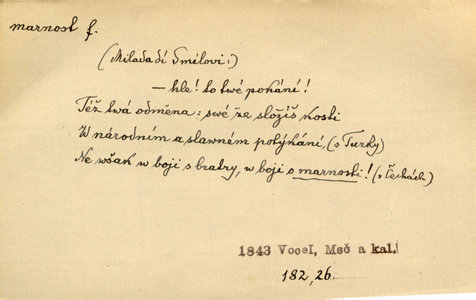 marnost f.
(Milada dí Smilovi:)
— hle! to twé pohání!
Též twá odměna: swé že složíš kosti
W národním a slawném potýkání, (s Turky)
Ne wšak w boji s bratry, w boji o marnosti! (v Čechách)
1843 Vocel, Meč a kal.
182,26.